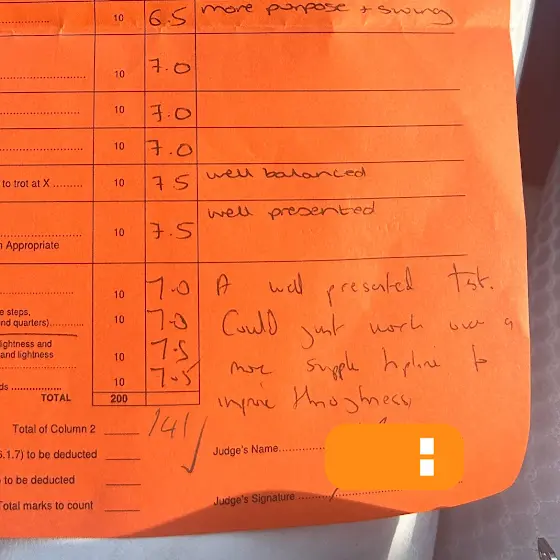 10 6.5 more purpose + swing
10 7.0
10 7.0
10 7.0
to trot at X ......... 10 7.5 well balanced
10 7.5 well presented
n Appropriate
10 7.0 A well presented test.
e steps,
nd quarters)........... 10 7.0 Could just work over a
lightness and
and lightness 10 7.5 more supple topline to
ds ................. 10 7.5 improve throughness,
TOTAL 200
Total of Column 2 141
6.1.7) to be deducted
Judge's Name
to be deducted
Total marks to count
Judge's Signature